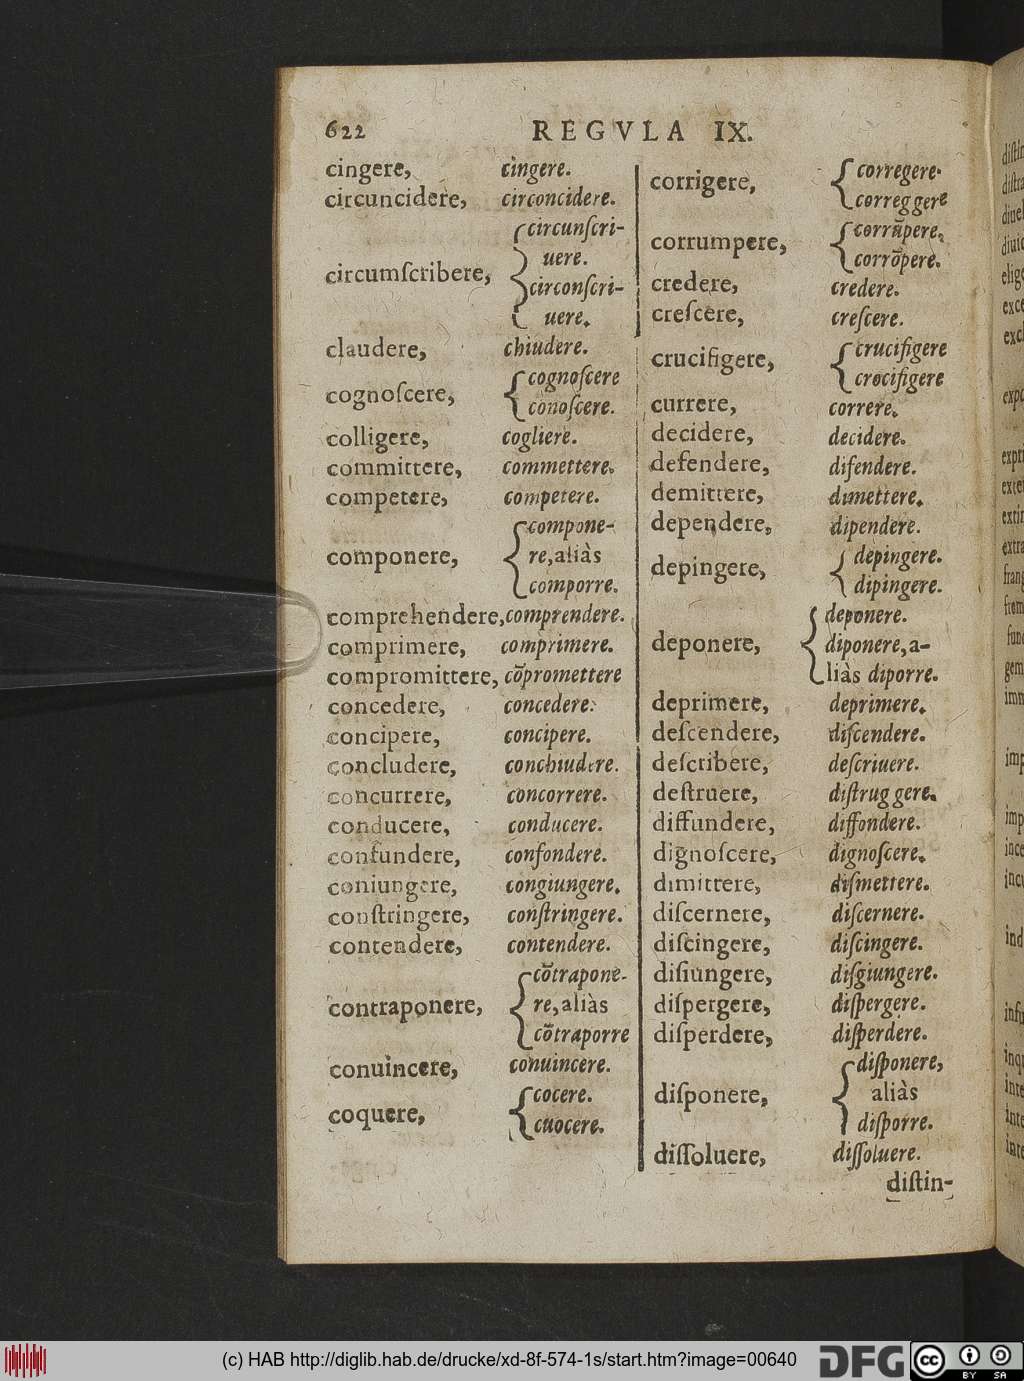 622 REGVLA IX.
cingere, cingere.
circuncidere, circoncidere.
circunſcri-
uere.
circumſcribere,
circonſcri-
uere.
claudere, chiudere.
cognoſcere
cognoſcere,
conoſcere.
colligere, cogliere.
committere, commettere.
competere, competere.
compone-
componere, re, aliàs
comporre.
comprehendere, comprendere.
comprimere, comprimere.
compromittere, cōpromettere
concedere, concedere.
concipere, concipere.
concludere, conchiudere.
concurrere, concorrere.
conducere, conducere.
confundere, confondere.
coniungere, congiungere.
conſtringere, conſtringere.
contendere, contendere.
cōtrapone-
contraponere, re, aliàs
cōtraporre
conuincere, conuincere.
cocere.
coquere,
cuocere.
corregere.
corrigere,
correggere
corrūpere.
corrumpere,
corrōpere.
credere, credere.
creſcere, creſcere.
crucifigere
crucifigere,
crocifigere
currere, correre.
decidere, decidere.
defendere, difendere.
demittere, dimettere.
dependere, dipendere.
depingere.
depingere,
dipingere.
deponere.
deponere, diponere, a-
liàs diporre.
deprimere, deprimere.
deſcendere, diſcendere.
deſcribere, deſcriuere.
deſtruere, diſtruggere.
diffundere, diffondere.
dignoſcere, dignoſcere.
dimittere, diſmettere.
diſcernere, diſcernere.
diſcingere, diſcingere.
diſiungere, diſgiungere.
diſpergere, diſpergere.
diſperdere, diſperdere.
diſponere,
diſponere, aliàs
diſporre.
diſſoluere, diſſoluere.
diſtin-
(c) HAB http://diglib.hab.de/drucke/xd-8f-574-1s/start.htm?image=00640
DFG
cc
BY SA